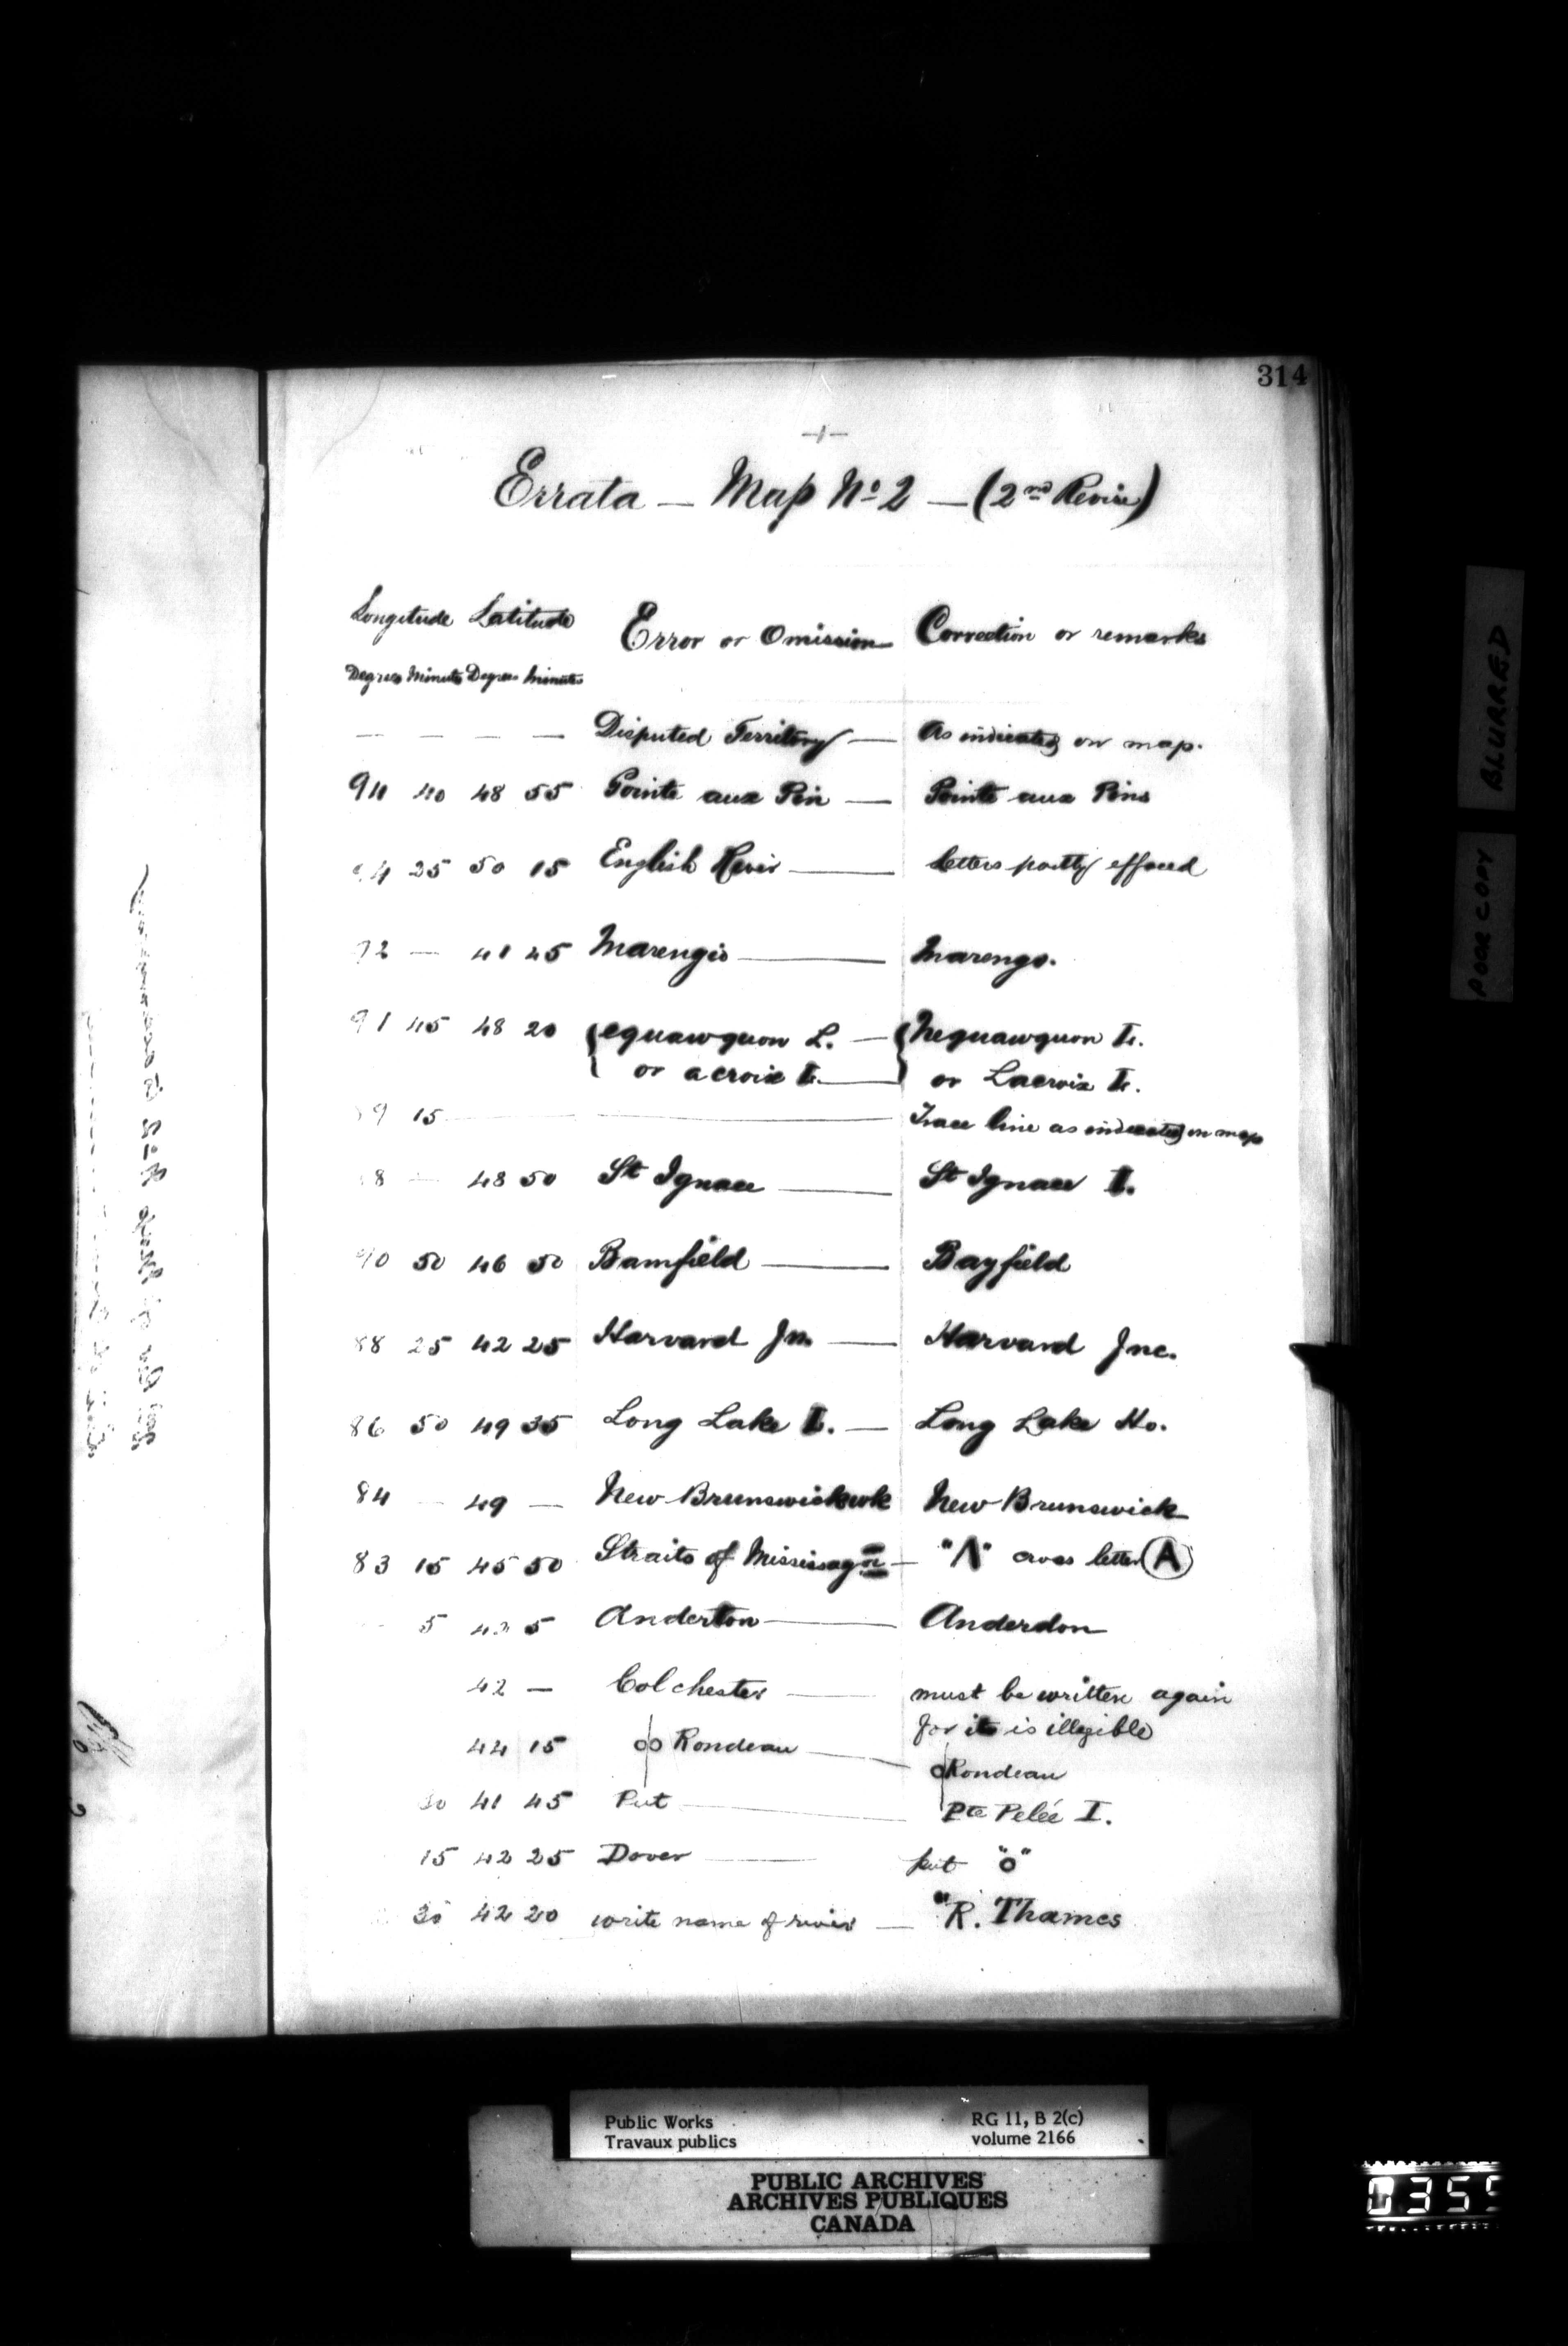 314
-1-
Errata — Map No 2 — (2nd Revise)
Longitude Latitude Error or Omission Correction or remarks
Degrees Minutes Degrees Minutes
— — — — Disputed Territory — As indicated on map.
94 40 48 55 Pointe aux Pin — Pointe aux Pins
94 25 50 15 English River — Letters partly effaced
92 — 41 45 Marengio — Marengo.
91 45 48 20 { equawquon L. — { Nequawquon L.
or acroix L. — or Lacroix L.
89 15 — Trace line as indicated on map
88 — 48 50 St Ignace — St Ignace I.
90 50 46 50 Bamfield — Bayfield
88 25 42 25 Harvard Jn. — Harvard Jnc.
86 50 49 35 Long Lake I. — Long Lake Ho.
84 — 49 — New Brunswickwk New Brunswick
83 15 45 50 Straits of Mississaga — "Λ" cross letter A
5 42 5 Anderton — Anderdon
42 — Colchester — must be written again
for it is illegible
44 15 Rondeau — Rondeau
30 41 45 Put — Pte Pelée I.
15 42 25 Dover — put "o"
30 42 20 write name of river — "R. Thames
BLURRED
POOR COPY
Public Works RG 11, B 2(c)
Travaux publics volume 2166
PUBLIC ARCHIVES
ARCHIVES PUBLIQUES
CANADA
0355